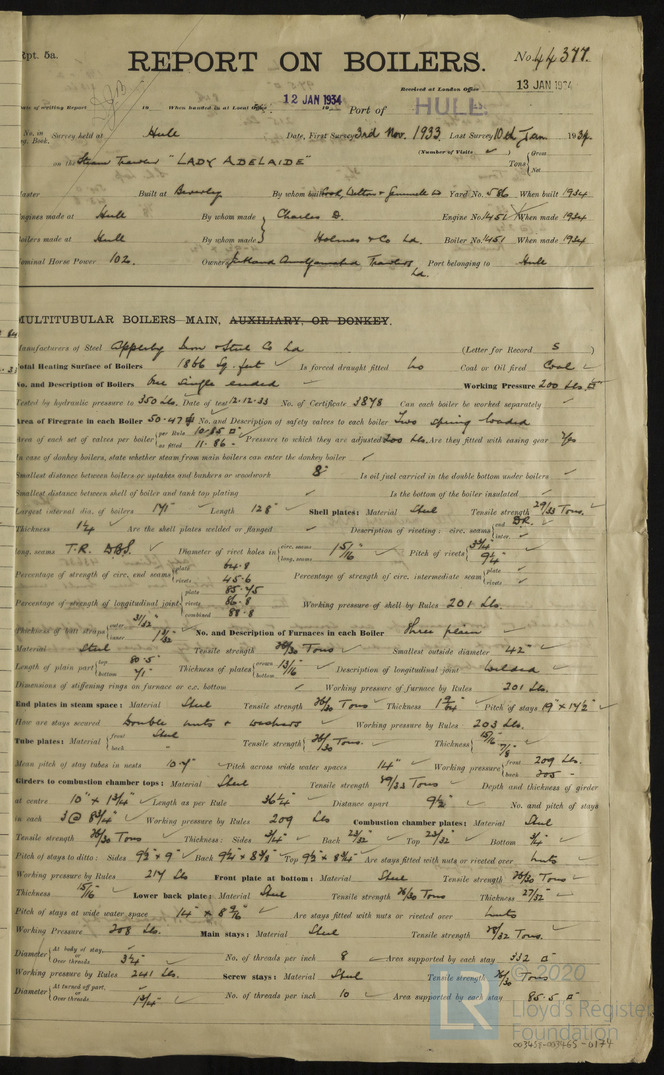 Rpt. 5a.
REPORT ON BOILERS.
No. 44377.
Received at London Office
13 JAN 1934
Date of writing Report 19 When handed in at Local Office 12 JAN 1934 Port of HULL.
No. in Reg. Book. Survey held at Hull Date, First Survey 3rd Nov. 1933 Last Survey 10th Jan 1934
(Number of Visits ✓)
on the Steam Trawler "LADY ADELAIDE" Tons { Gross Net
Master Built at Beverley By whom built Cook, Welton & Gemmell Ld Yard No. 586 When built 1934
Engines made at Hull By whom made } Charles D. Engine No. 1451 When made 1934
Boilers made at Hull By whom made } Holmes & Co Ld. Boiler No. 1451 When made 1934
Nominal Horse Power 102. Owners Jutland Amalgamated Trawlers Ld. Port belonging to Hull
MULTITUBULAR BOILERS MAIN, AUXILIARY, OR DONKEY.
Manufacturers of Steel Appleby Iron & Steel Co Ld (Letter for Record S )
Total Heating Surface of Boilers 1866 Sq. feet ✓ Is forced draught fitted No Coal or Oil fired Coal ✓
No. and Description of Boilers One single ended ✓ Working Pressure 200 Lbs.
Tested by hydraulic pressure to 350 Lbs. Date of test 12-12-33 No. of Certificate 3878 Can each boiler be worked separately ✓
Area of Firegrate in each Boiler 50.47 No. and Description of safety valves to each boiler Two spring loaded
Area of each set of valves per boiler { per Rule 10.85 as fitted 11.86 Pressure to which they are adjusted 200 Lbs. Are they fitted with easing gear Yes
In case of donkey boilers, state whether steam from main boilers can enter the donkey boiler ✓
Smallest distance between boilers or uptakes and bunkers or woodwork 8" Is oil fuel carried in the double bottom under boilers ✓
Smallest distance between shell of boiler and tank top plating ✓ Is the bottom of the boiler insulated ✓
Largest internal dia. of boilers 171" Length 128" Shell plates: Material Steel Tensile strength 29/33 Tons. ✓
Thickness 1 1/4 Are the shell plates welded or flanged ✓ Description of riveting: circ. seams { end D.R. inter. ✓
long. seams T.R. D.B.S. Diameter of rivet holes in { circ. seams long. seams 1 5/16 ✓ Pitch of rivets { 3 3/4 9 1/4
Percentage of strength of circ. end seams { plate 64.8 rivets 45.6 Percentage of strength of circ. intermediate seam { plate ✓ rivets ✓
Percentage of strength of longitudinal joint { plate 85.45 rivets 86.8 combined 88.8 Working pressure of shell by Rules 201 Lbs.
Thickness of butt straps { outer 31/32 inner 1 3/32 No. and Description of Furnaces in each Boiler Three plain ✓
Material Steel Tensile strength 26/30 Tons ✓ Smallest outside diameter 42" ✓
Length of plain part { top 80.5 bottom 71" Thickness of plates { crown bottom 13/16 Description of longitudinal joint welded ✓
Dimensions of stiffening rings on furnace or c.c. bottom ✓ Working pressure of furnace by Rules 201 Lbs.
End plates in steam space: Material Steel Tensile strength 26/30 Tons Thickness 1 9/64 Pitch of stays 19" x 17 1/2"
How are stays secured Double nuts & washers ✓ Working pressure by Rules 203 Lbs.
Tube plates: Material { front Steel back " Tensile strength { 26/30 Tons. Thickness { 15/16 7/8
Mean pitch of stay tubes in nests 10.7" Pitch across wide water spaces 14" ✓ Working pressure { front 209 Lbs. back 205 -
Girders to combustion chamber tops: Material Steel Tensile strength 29/33 Tons Depth and thickness of girder
at centre 10" x 1 3/4" Length as per Rule 36 1/4" Distance apart 9 1/2" No. and pitch of stays
in each 3 @ 8 3/4" Working pressure by Rules 209 Lbs Combustion chamber plates: Material Steel
Tensile strength 26/30 Tons Thickness: Sides 3/4" Back 23/32 Top 23/32 Bottom 3/4"
Pitch of stays to ditto: Sides 9 1/2" x 9" Back 9 1/4" x 8 7/8 Top 9 1/2" x 8 3/4" Are stays fitted with nuts or riveted over Nuts
Working pressure by Rules 214 Lbs Front plate at bottom: Material Steel Tensile strength 26/30 Tons
Thickness 15/16 Lower back plate: Material Steel Tensile strength 26/30 Tons Thickness 27/32
Pitch of stays at wide water space 14" x 8 9/16 Are stays fitted with nuts or riveted over Nuts
Working Pressure 208 Lbs. Main stays: Material Steel Tensile strength 28/32 Tons.
Diameter { At body of stay, or Over threads 3 1/4" No. of threads per inch 8 Area supported by each stay 332
Working pressure by Rules 241 Lbs. Screw stays: Material Steel Tensile strength 26/30 Tons
Diameter { At turned off part, or Over threads 1 3/4" No. of threads per inch 10 Area supported by each stay 85.5
© 2020
LR
Lloyd's Register
Foundation
003453-003465-0174